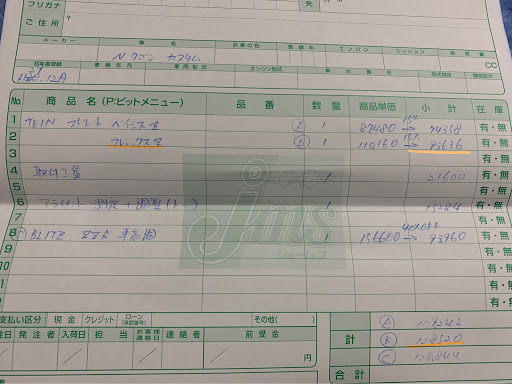 フリガナ
ご住所 〒
先
メーカー 車名 お車の色 登録年 エンジン ミッション 排気量
Nワゴン カスタム CC
初年度登録 車検年月 車両型式 エンジン型式 車台番号 型式指定 類別区分
12月
No. 商品名(P:ピットメニュー) 品番 数量 商品単価 小計 在庫
1 TEIN ストリート ベイシスZ Ⓐ 1 87480 15% → 74358 有・無
2 フレックスZ Ⓑ 1 110160 15% → 93636 有・無
3 有・無
4 取付工賃 1 21600 有・無
5 有・無
6 アライメント 測定+調整 13284 有・無
7 有・無
8 Ⓒ BLITZ ZZR 車高調 1 156600 40%OFF → 93960 有・無
9 有・無
10 有・無
jms
ジェームス
支払い区分 現金 クレジット ローン(承認番号) その他( )
注日 発注者 入荷日 担当 お客様連絡日 連絡者 前受金
円
計 Ⓐ 109242
Ⓑ 128520
Ⓒ 128,844
合計